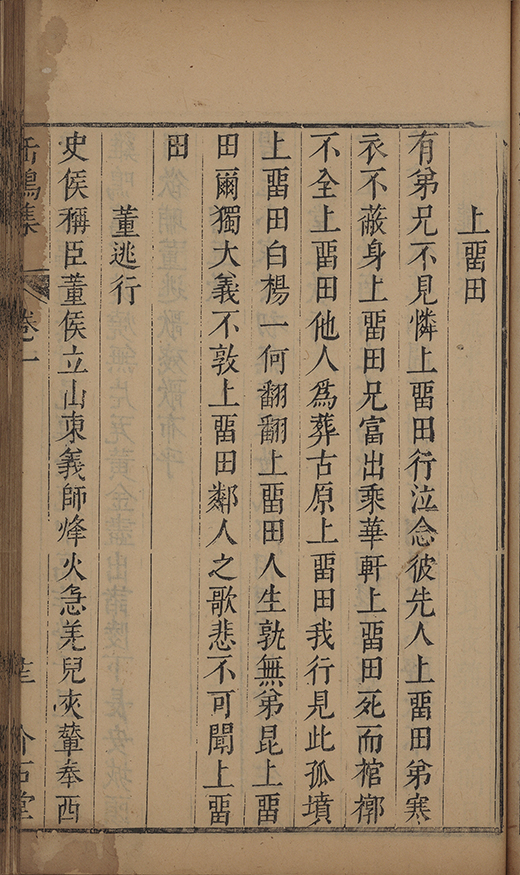 上畱田
有弟兄不見憐上畱田行泣念彼先人上畱田弟寒
衣不蔽身上畱田兄富出乘華軒上畱田死而棺槨
不全上畱田他人爲葬古原上畱田我行見此孤墳
上畱田白楊一何翻翻上畱田人生孰無弟昆上畱
田爾獨大義不敦上畱田鄰人之歌悲不可聞上畱
田
董逃行
史侯稱臣董侯立山東義師烽火急羌兒夾輦奉西
卷一